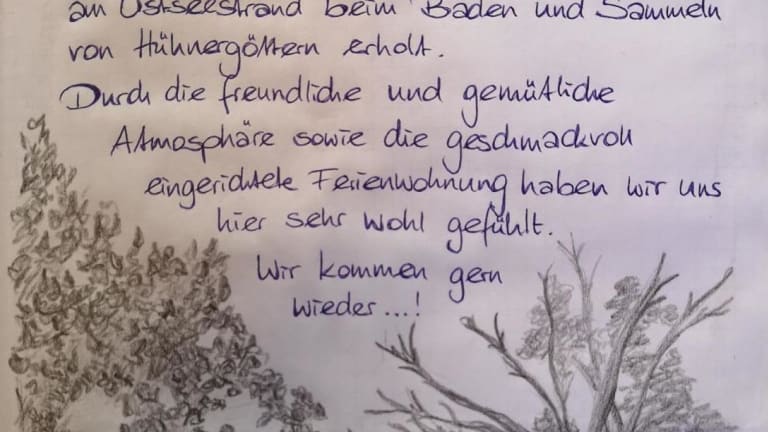 am Ostseestrand beim Baden und Sammeln
von Hühnergöttern erholt.
Durch die freundliche und gemütliche
Atmosphäre sowie die geschmackvoll
eingerichtete Ferienwohnung haben wir uns
hier sehr wohl gefühlt.
Wir kommen gern
wieder...!